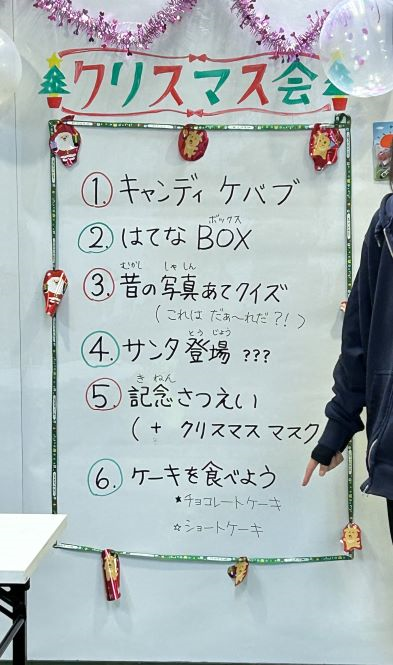 クリスマス会
1. キャンディ ケバブ
ボックス
2. はてな BOX
むかし しゃしん
3. 昔の写真あてクイズ
(これは だぁ〜れだ?!)
とうじょう
4. サンタ 登場 ???
きねん
5. 記念さつえい
(+ クリスマス マスク
6. ケーキを食べよう
★チョコレートケーキ
☆ショートケーキ